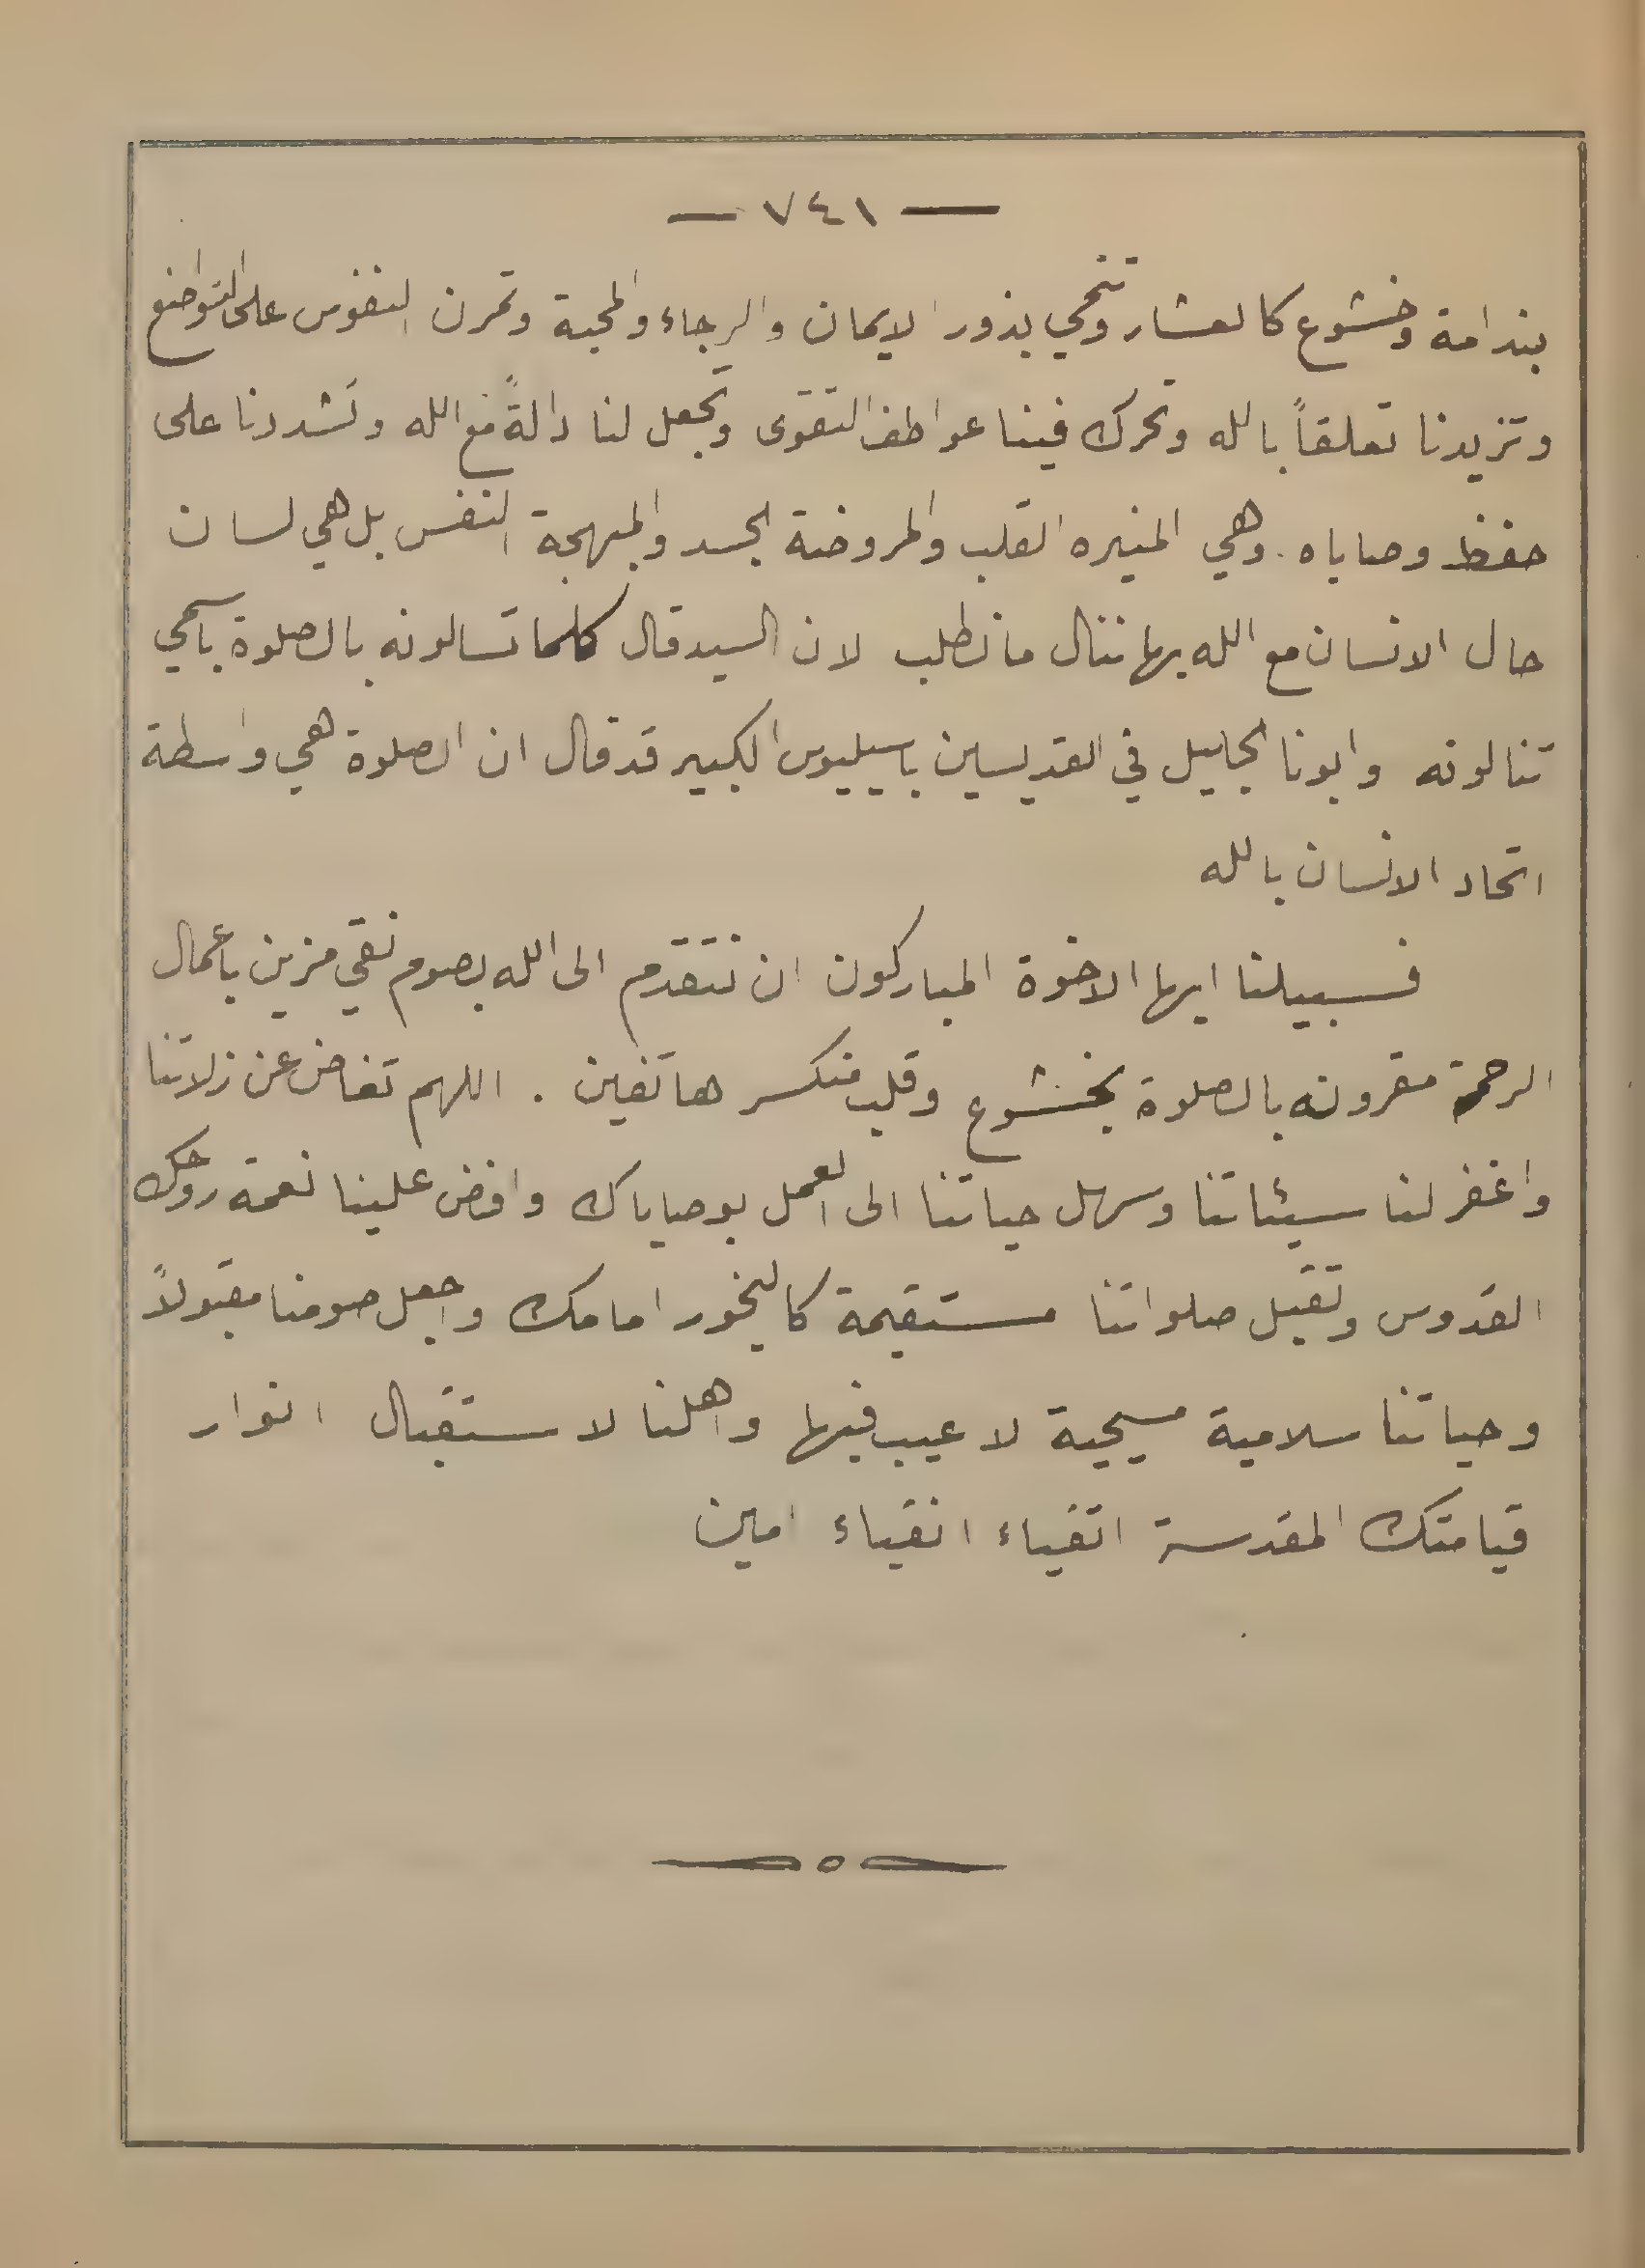 — ٧٤١ —
بندامة وخشوع كالعشار وتنمي بذور الايمان والرجاء والمحبة وتمرن النفوس على التواضع
وتزيدنا تعلقاً بالله وتحرك فينا عواطف التقوى وتجعل لنا دالةً مع الله وتشددنا على
حفظ وصاياه . وهي المنيره القلب والمروضة الجسد والمبهجة النفس بل هي لسان
حال الانسان مع الله بها ننال ما نطلب لان السيد قال كلما تسالونه بالصلوة باسمي
تنالونه وابونا الجليل في القديسين باسيليوس الكبير قد قال ان الصلوة هي واسطة
اتحاد الانسان بالله
فسبيلنا ايها الاخوة المباركون ان نتقدم الى الله بصوم نقي مزين باعمال
الرحمة مقرونه بالصلوة بخشوع وقلب منكسر هاتفين . اللهم تغاض عن زلاتنا
واغفر لنا سيئاتنا وسهل حياتنا الى العمل بوصاياك وافض علينا نعمة روحك
القدوس وتقبل صلواتنا مستقيمة كالبخور امامك واجعل صومنا مقبولاً
وحياتنا سلامية مسيحية لا عيب فيها واهلنا لاستقبال انوار
قيامتك المقدسة اتقياء انقياء امين